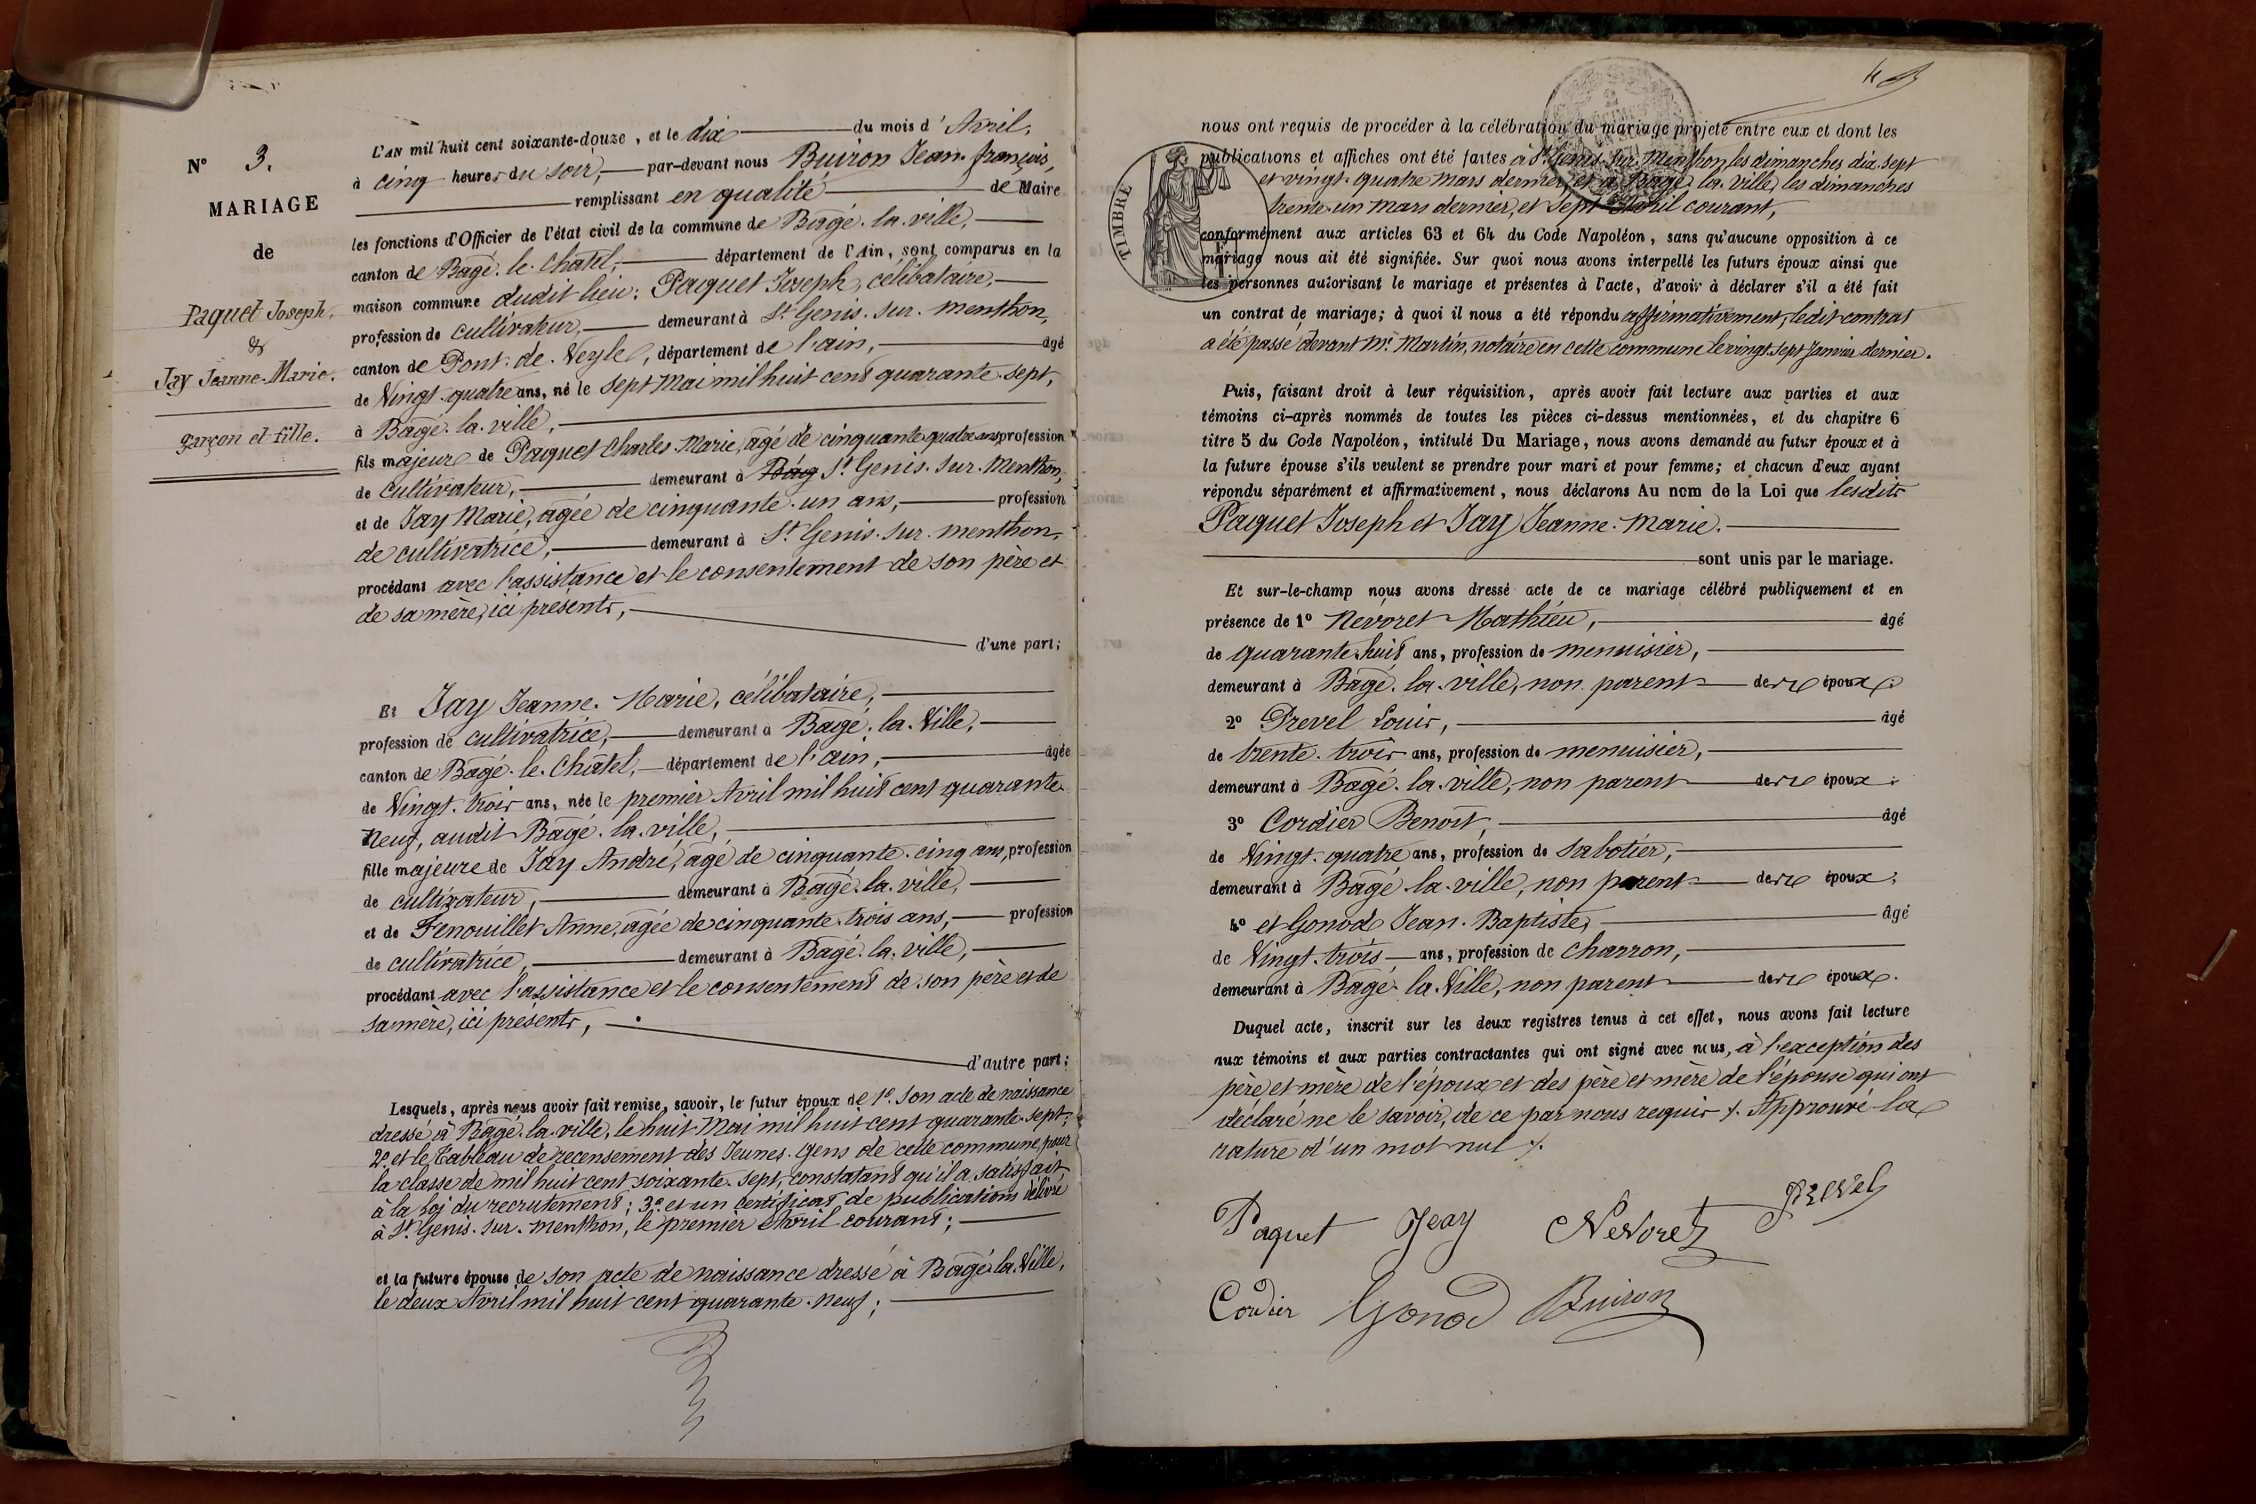 N° 3.
MARIAGE
de
Paquet Joseph,
&
Jay Jeanne-Marie.
garçon et fille.
L'AN mil huit cent soixante-douze, et le dix du mois d'Avril,
à cinq heures du soir, par-devant nous Buiron Jean-françois,
remplissant en qualité de Maire
les fonctions d'Officier de l'état civil de la commune de Bâgé-la-ville,
canton de Bâgé-le-Châtel, département de l'Ain, sont comparus en la
maison commune dudit lieu: Paquet Joseph, célibataire,
profession de cultivateur, demeurant à St Genis-sur-menthon,
canton de Pont-de-Veyle, département de l'ain, âgé
de Vingt-quatre ans, né le sept Mai mil huit cent quarante-sept,
à Bâgé-la-ville,
fils majeur de Paquet Charles-Marie, âgé de cinquante-quatre ans profession
de cultivateur, demeurant à Bâg St Genis-sur-Menthon,
et de Jay Marie, âgée de cinquante-un ans, profession
de cultivatrice, demeurant à St Genis-sur-menthon,
procédant avec l'assistance et le consentement de son père et
de sa mère, ici présents,
d'une part;
Et Jay Jeanne-Marie, célibataire,
profession de cultivatrice, demeurant à Bâgé-la-Ville,
canton de Bâgé-le-Châtel, département de l'ain, âgée
de Vingt-trois ans, née le premier Avril mil huit cent quarante-
neuf, audit Bâgé-la-ville,
fille majeure de Jay André, âgé de cinquante-cinq ans, profession
de cultivateur, demeurant à Bâgé-la-ville,
et de Fenouillet Anne, âgée de cinquante-trois ans, profession
de cultivatrice, demeurant à Bâgé-la-ville,
procédant avec l'assistance et le consentement de son père et de
sa mère, ici présents,
d'autre part;
Lesquels, après nous avoir fait remise, savoir, le futur époux de 1°. son acte de naissance
dressé à Bâgé-la-ville, le huit Mai mil huit cent quarante-sept;
2°. et le Tableau de recensement des Jeunes-Gens de cette commune, pour
la classe de mil huit cent soixante-sept, constatant qu'il a satisfait
à la loi du recrutement; 3°. et un certificat de publications délivré
à St Genis-sur-menthon, le premier Avril courant;
et la future épouse de son acte de naissance dressé à Bâgé-la-Ville,
le deux Avril mil huit cent quarante-neuf;
nous ont requis de procéder à la célébration du mariage projeté entre eux et dont les
publications et affiches ont été faites à St Genis-sur-Menthon les dimanches dix-sept
et vingt-quatre mars dernier, et à Bâgé-la-ville, les dimanches
trente-un mars dernier, et sept Avril courant,
TIMBRE
conformément aux articles 63 et 64 du Code Napoléon, sans qu'aucune opposition à ce
mariage nous ait été signifiée. Sur quoi nous avons interpellé les futurs époux ainsi que
les personnes autorisant le mariage et présentes à l'acte, d'avoir à déclarer s'il a été fait
un contrat de mariage; à quoi il nous a été répondu affirmativement, ledit contrat
a été passé devant Me. Martin, notaire en cette commune le vingt-sept Janvier dernier.
Puis, faisant droit à leur réquisition, après avoir fait lecture aux parties et aux
témoins ci-après nommés de toutes les pièces ci-dessus mentionnées, et du chapitre 6
titre 5 du Code Napoléon, intitulé Du Mariage, nous avons demandé au futur époux et à
la future épouse s'ils veulent se prendre pour mari et pour femme; et chacun d'eux ayant
répondu séparément et affirmativement, nous déclarons Au nom de la Loi que lesdits
Paquet Joseph et Jay Jeanne-Marie.
sont unis par le mariage.
Et sur-le-champ nous avons dressé acte de ce mariage célébré publiquement et en
présence de 1° Nevoret Mathieu, âgé
de quarante-huit ans, profession de menuisier,
demeurant à Bâgé-la-ville, non parent des époux;
2° Prevel Louis, âgé
de trente-trois ans, profession de menuisier,
demeurant à Bâgé-la-ville, non parent des époux;
3° Cordier Benoît, âgé
de Vingt-quatre ans, profession de sabotier,
demeurant à Bâgé-la-ville, non parent des époux;
4° et Gonod Jean-Baptiste, âgé
de Vingt-trois ans, profession de charron,
demeurant à Bâgé-la-Ville, non parent des époux.
Duquel acte, inscrit sur les deux registres tenus à cet effet, nous avons fait lecture
aux témoins et aux parties contractantes qui ont signé avec nous, à l'exception des
père et mère de l'époux et des père et mère de l'épouse qui ont
déclaré ne le savoir, de ce par nous requis ./. Approuvé la
rature d'un mot nul ./.
Paquet Jeay Nevoret Prevel
Cordier Gonod Buiron